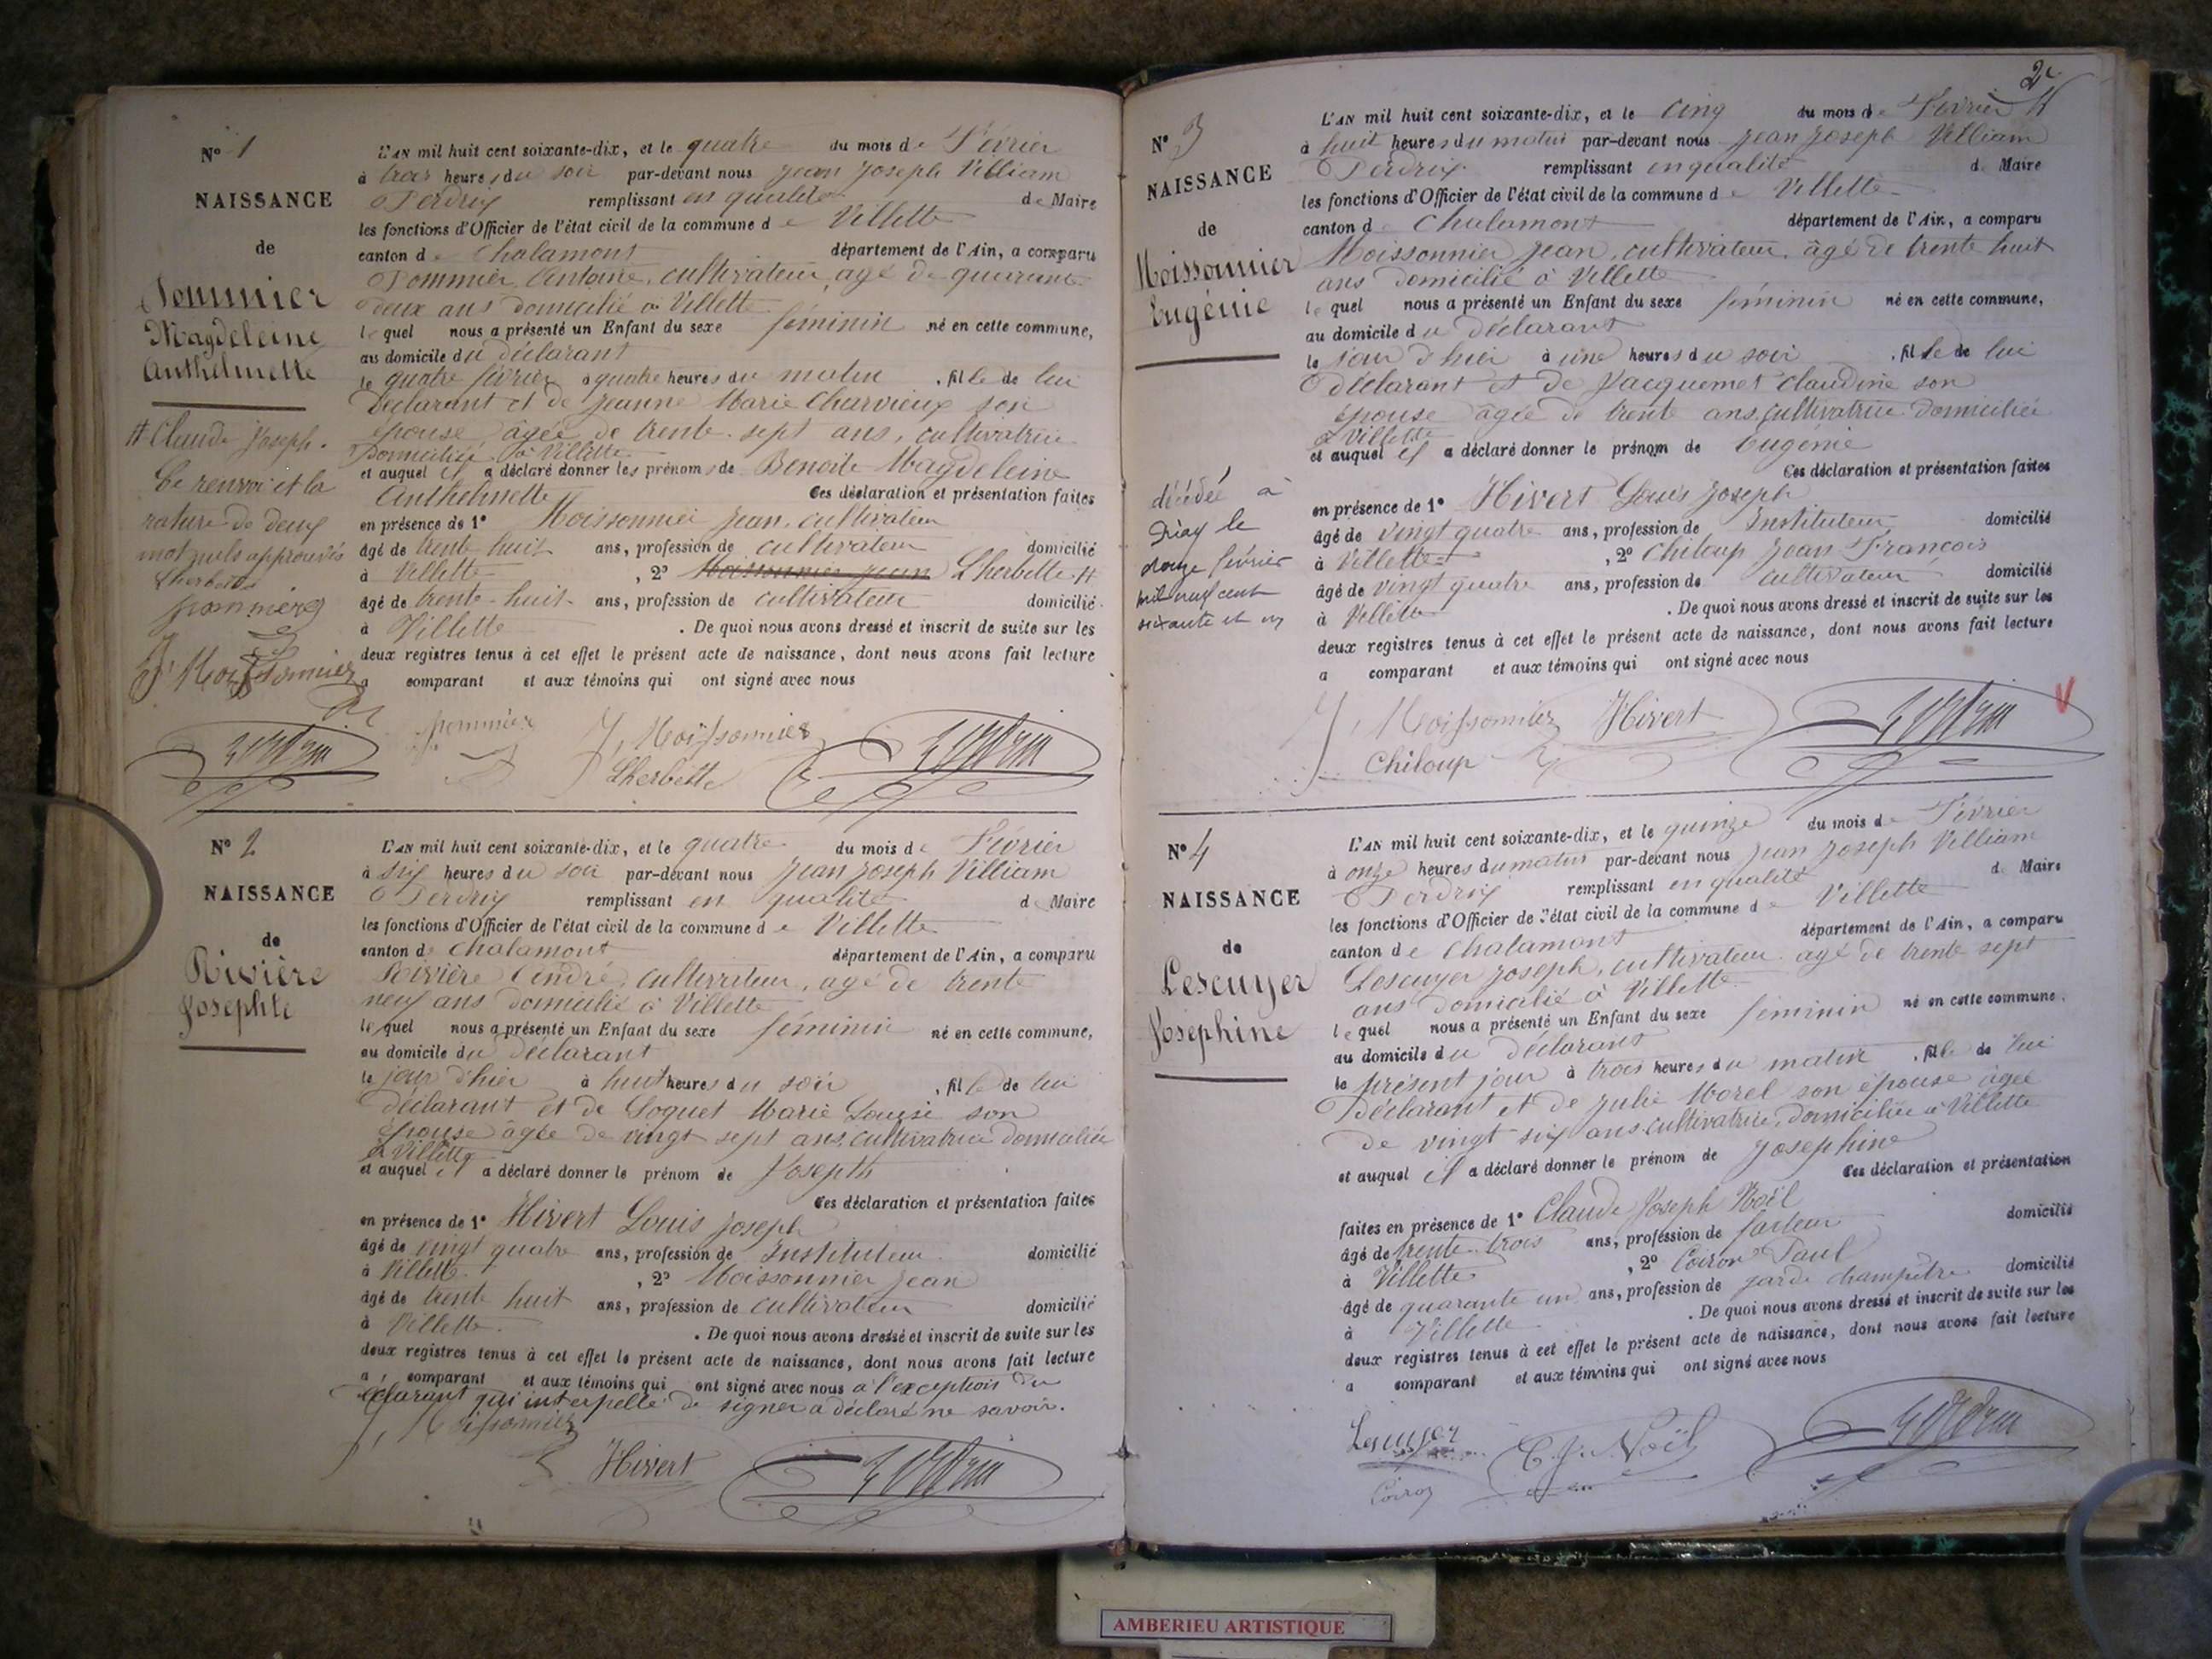 N° 1
NAISSANCE
de
Pommier
Magdeleine
Anthelmette
# Claude Joseph.
Ce renvoi et la
rature de deux
mot nuls approuvés
Lherbette
pommier
J. Moissonnier
L'AN mil huit cent soixante-dix, et le quatre du mois de Février
à trois heures du soir par-devant nous Jean Joseph Villiam
Perdrix remplissant en qualité de Maire
les fonctions d'Officier de l'état civil de la commune de Villette
canton de Chalamont département de l'Ain, a comparu
Pommier Antoine, cultivateur, agé de quarante
deux ans domicilié à Villette
lequel nous a présenté un Enfant du sexe féminin né en cette commune,
au domicile du déclarant
le quatre février à quatre heures du matin, fille de lui
Déclarant et de Jeanne Marie Charvieux son
épouse âgée de trente-sept ans, cultivatrice
Domiciliée à Villette
et auquel il a déclaré donner les prénoms de Benoite Magdeleine
Anthelmette Ces déclaration et présentation faites
en présence de 1° Moissonnier Jean, cultivateur
âgé de trente huit ans, profession de cultivateur domicilié
à Villette, 2° Moissonnier Jean Lherbette #
âgé de trente-huit ans, profession de cultivateur domicilié
à Villette. De quoi nous avons dressé et inscrit de suite sur les
deux registres tenus à cet effet le présent acte de naissance, dont nous avons fait lecture
a comparant et aux témoins qui ont signé avec nous
pommier J. Moissonnier Perdrix
Lherbette
N° 2
NAISSANCE
de
Rivière
Josephte
L'AN mil huit cent soixante-dix, et le quatre du mois de Février
à six heures du soir par-devant nous Jean Joseph Villiam
Perdrix remplissant en qualité de Maire
les fonctions d'Officier de l'état civil de la commune de Villette
canton de Chalamont département de l'Ain, a comparu
Rivière André, cultivateur, agé de trente
neuf ans domicilié à Villette
lequel nous a présenté un Enfant du sexe féminin né en cette commune,
au domicile du déclarant
le jour d'hier à huit heures du soir, fille de lui
déclarant et de Loquet Marie Louise son
épouse âgée de vingt sept ans, cultivatrice domiciliée
à Villette
et auquel il a déclaré donner le prénom de Joseph
Ces déclaration et présentation faites
en présence de 1° Hivert Louis Joseph
âgé de vingt quatre ans, profession de Instituteur domicilié
à Villette, 2° Moissonnier Jean
âgé de trente huit ans, profession de cultivateur domicilié
à Villette. De quoi nous avons dressé et inscrit de suite sur les
deux registres tenus à cet effet le présent acte de naissance, dont nous avons fait lecture
a comparant et aux témoins qui ont signé avec nous à l'exception du
déclarant qui interpellé de signer a déclaré ne savoir.
J. Moissonnier
Hivert Perdrix
2e
N° 3
NAISSANCE
de
Moissonnier
Eugénie
décédée à
le
douze février
mil neuf cent
soixante et un
L'AN mil huit cent soixante-dix, et le cinq du mois de Février
à huit heures du matin par-devant nous Jean Joseph Villiam
Perdrix remplissant en qualité de Maire
les fonctions d'Officier de l'état civil de la commune de Villette
canton de Chalamont département de l'Ain, a comparu
Moissonnier Jean, cultivateur, âgé de trente huit
ans domicilié à Villette
lequel nous a présenté un Enfant du sexe féminin né en cette commune,
au domicile du déclarant
le jour d'hier à une heures du soir, fille de lui
déclarant et de Jacquemet Claudine son
épouse âgée de trente ans, cultivatrice domiciliée
à Villette
et auquel il a déclaré donner le prénom de Eugénie
Ces déclaration et présentation faites
en présence de 1° Hivert Louis Joseph
âgé de vingt quatre ans, profession de Instituteur domicilié
à Villette, 2° Chiloup Jean François
âgé de vingt quatre ans, profession de cultivateur domicilié
à Villette. De quoi nous avons dressé et inscrit de suite sur les
deux registres tenus à cet effet le présent acte de naissance, dont nous avons fait lecture
a comparant et aux témoins qui ont signé avec nous
J. Moissonnier Hivert Perdrix
Chiloup
N° 4
NAISSANCE
de
Lescuyer
Joséphine
L'AN mil huit cent soixante-dix, et le quinze du mois de Février
à onze heures du matin par-devant nous Jean Joseph Villiam
Perdrix remplissant en qualité de Maire
les fonctions d'Officier de l'état civil de la commune de Villette
canton de Chalamont département de l'Ain, a comparu
Lescuyer Joseph, cultivateur agé de trente sept
ans domicilié à Villette
lequel nous a présenté un Enfant du sexe féminin né en cette commune,
au domicile du déclarant
le présent jour à trois heures du matin, fille de lui
Déclarant et de Julie Morel son épouse âgée
de vingt six ans cultivatrice, domiciliée à Villette
et auquel il a déclaré donner le prénom de Josephine
Ces déclaration et présentation
faites en présence de 1° Claude Joseph Noël
âgé de trente-trois ans, profession de facteur domicilié
à Villette, 2° Coiron Paul
âgé de quarante un ans, profession de garde champêtre domicilié
à Villette. De quoi nous avons dressé et inscrit de suite sur les
deux registres tenus à cet effet le présent acte de naissance, dont nous avons fait lecture
a comparant et aux témoins qui ont signé avec nous
Lescuyer C. J. Noël Perdrix
Coiron
AMBERIEU ARTISTIQUE